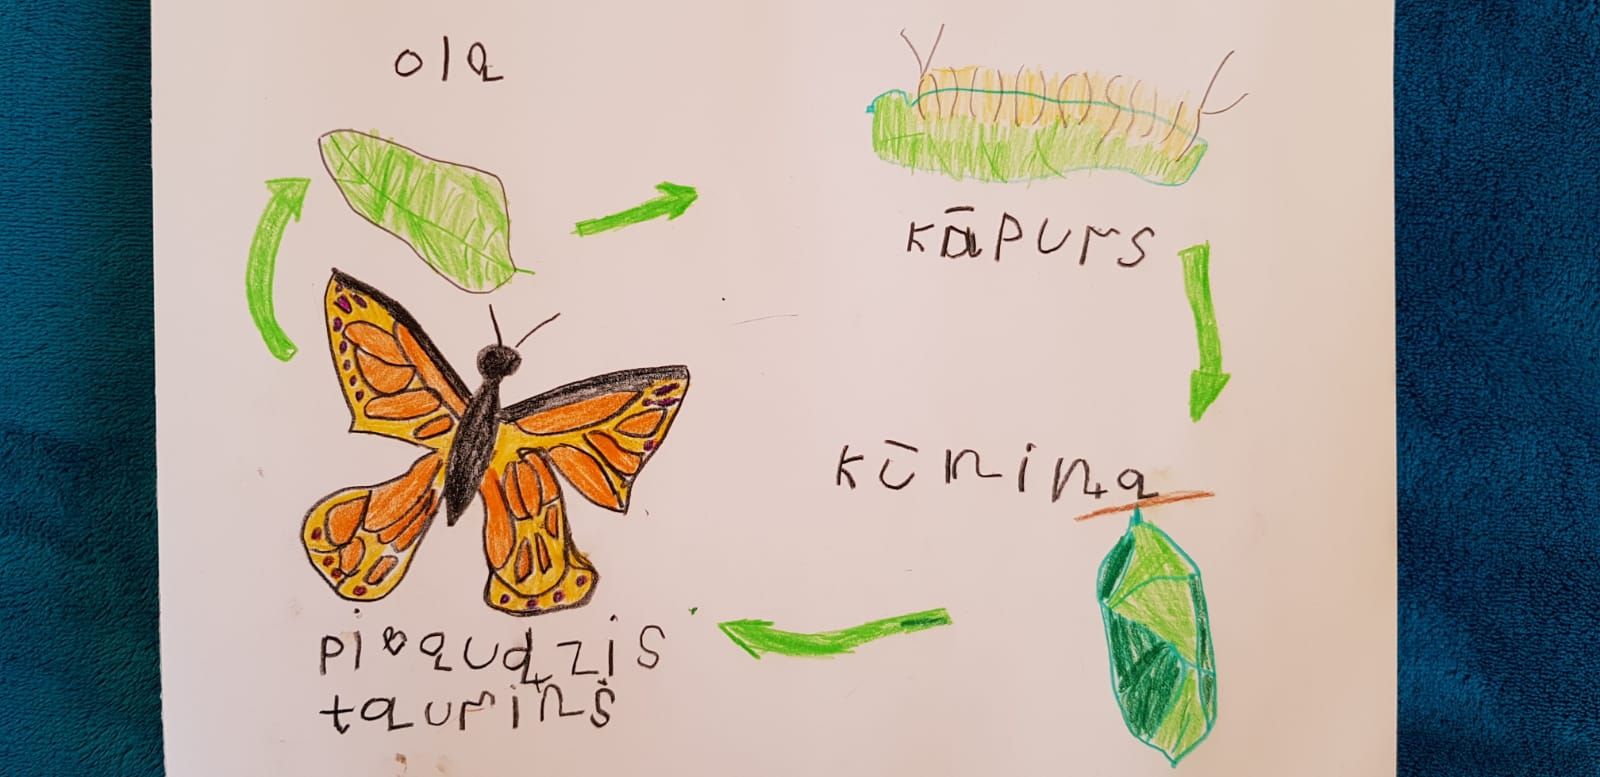 ola
kāpurs
kūniņa
pieaudzis
taurinš